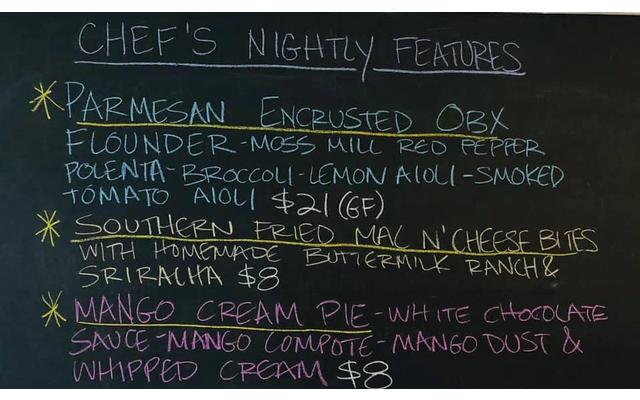 CHEF'S NIGHTLY FEATURES
* PARMESAN ENCRUSTED OBX
FLOUNDER - MOSS MILL RED PEPPER
POLENTA - BROCCOLI - LEMON AIOLI - SMOKED
TOMATO AIOLI $21 (GF)
* SOUTHERN FRIED MAC N' CHEESE BITES
WITH HOMEMADE BUTTERMILK RANCH &
SRIRACHA $8
* MANGO CREAM PIE - WHITE CHOCOLATE
SAUCE - MANGO COMPOTE - MANGO DUST &
WHIPPED CREAM $8